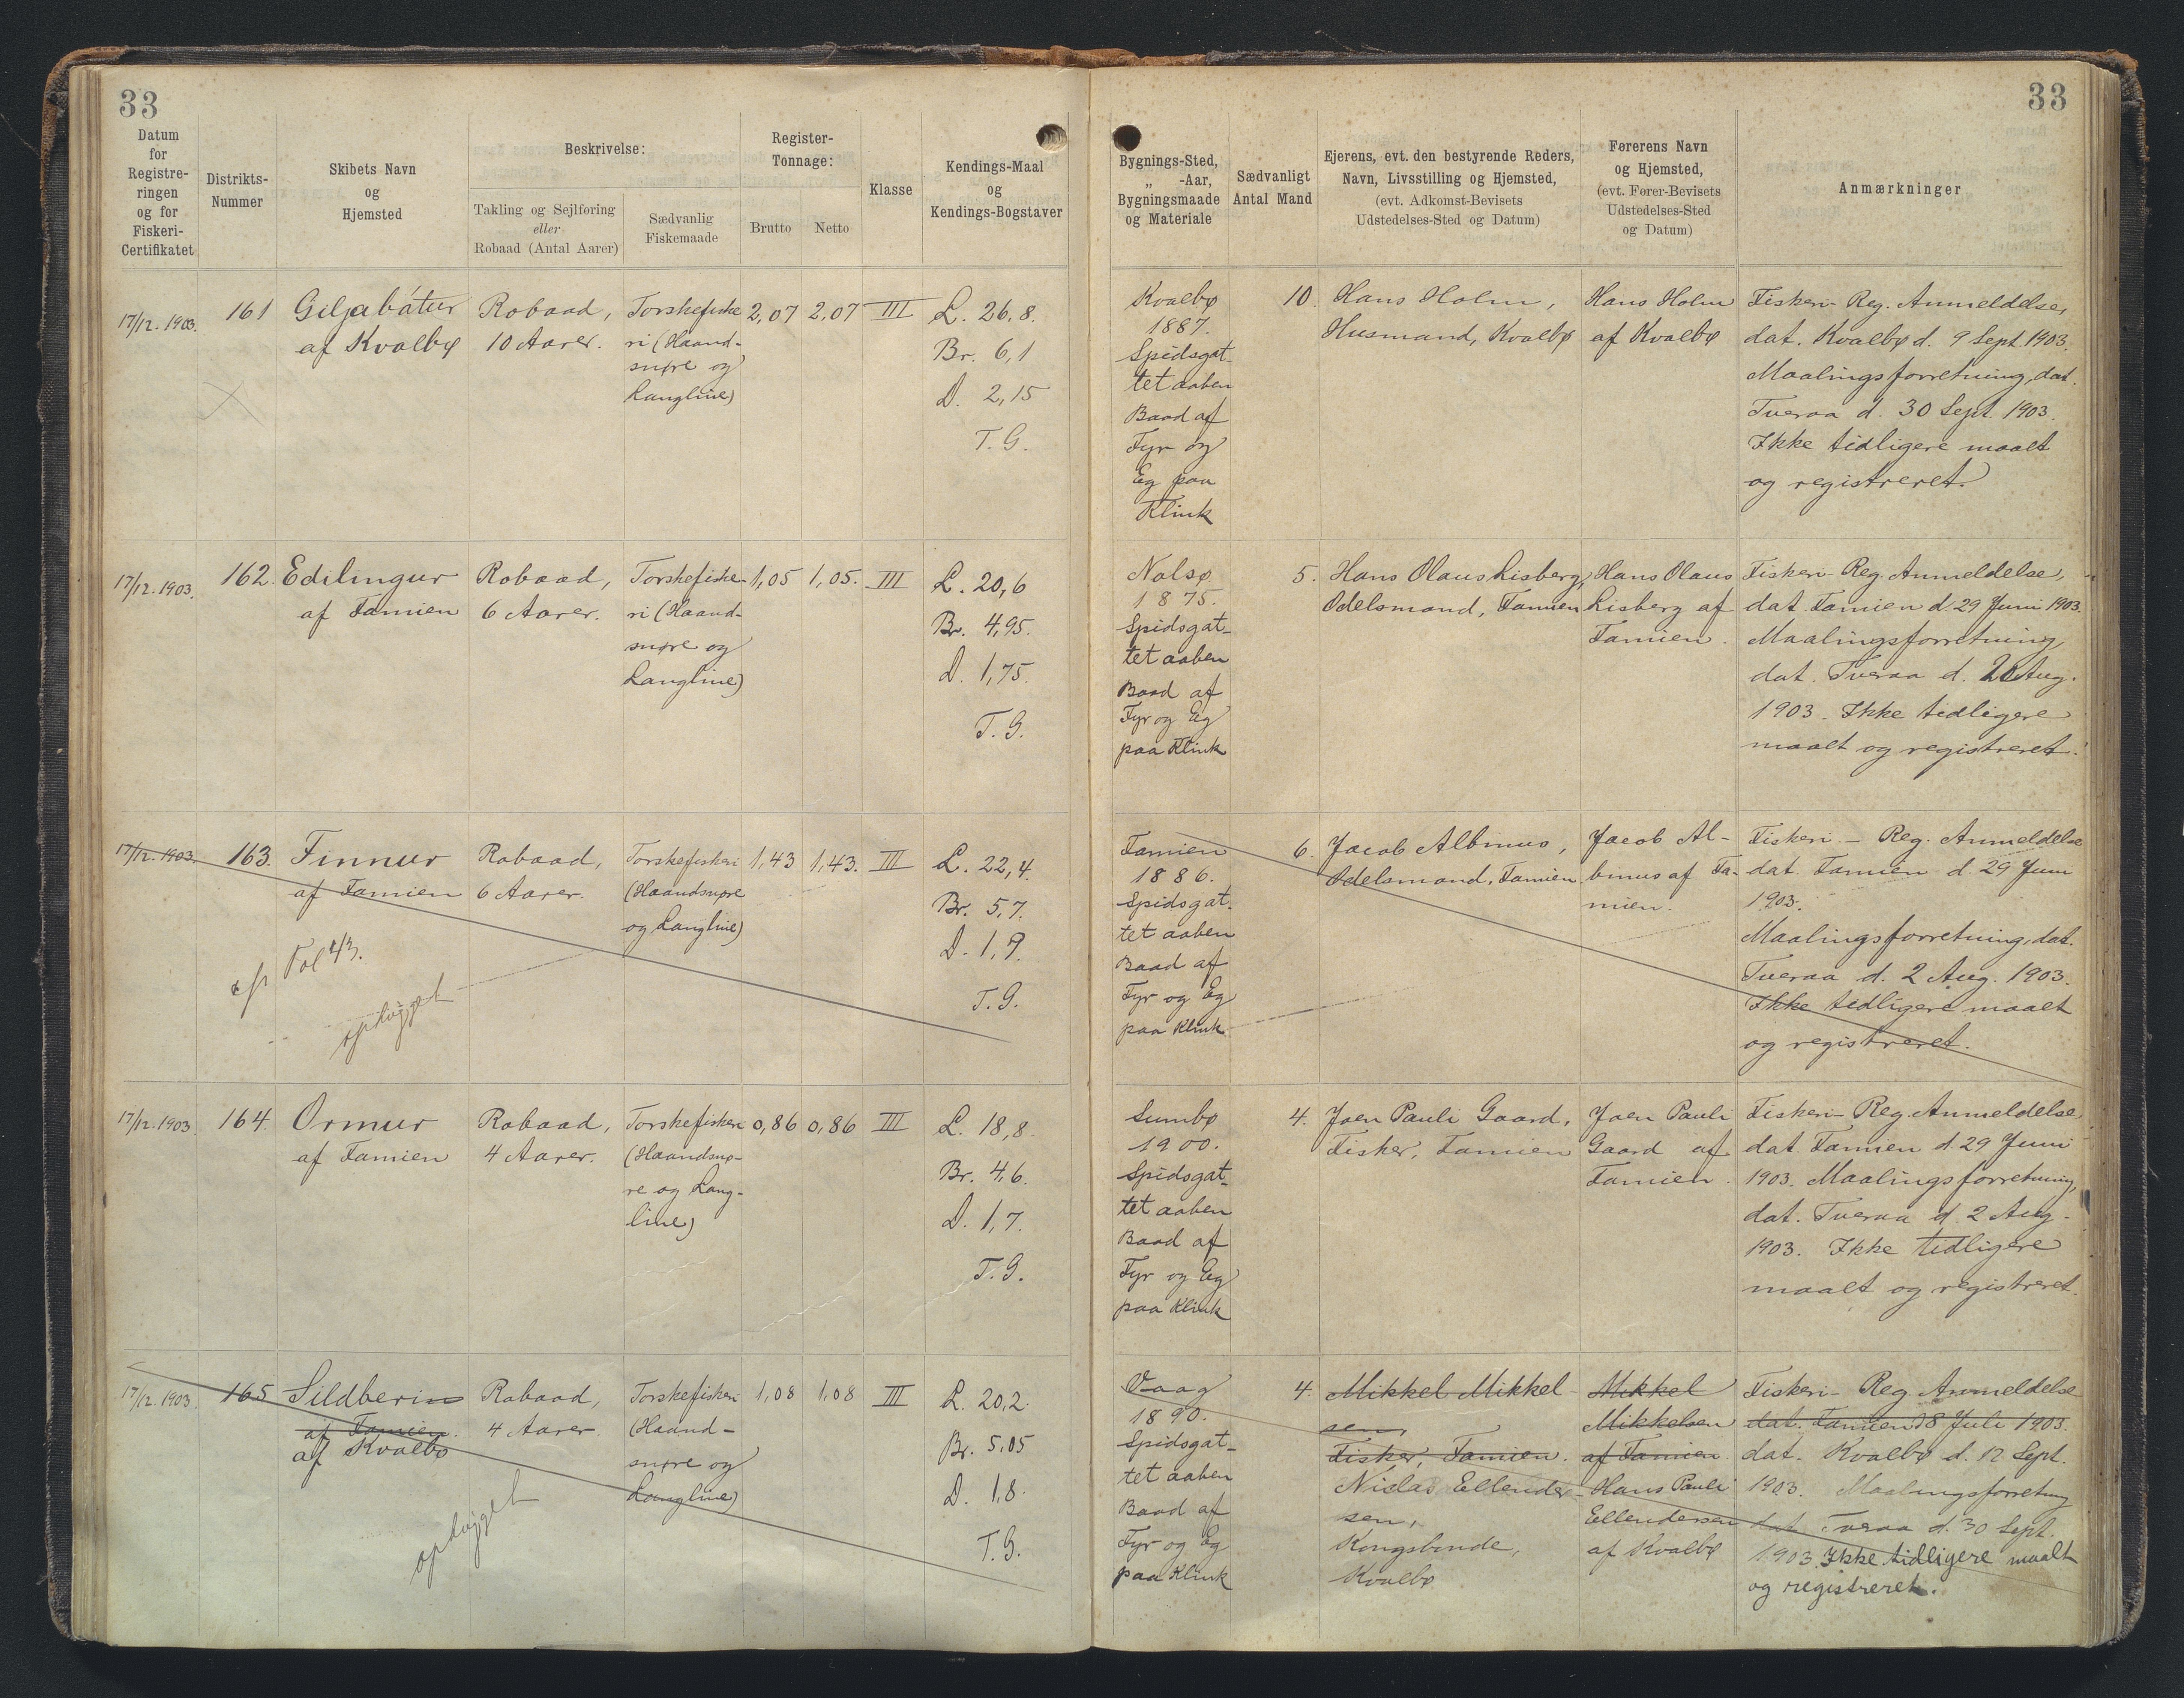 33
33
Datum
for
Registre-
ringen
og for
Fiskeri-
Certifikatet
Distrikts-
Nummer
Skibets Navn
og
Hjemsted
Beskrivelse:
Takling og Sejlføring
eller
Robaad (Antal Aarer)
Sædvanlig
Fiskemaade
Register-
Tonnage:
Brutto
Netto
Klasse
Kendings-Maal
og
Kendings-Bogstaver
Bygnings-Sted,
„ -Aar,
Bygningsmaade
og Materiale
Sædvanligt
Antal Mand
Ejerens, evt. den bestyrende Reders,
Navn, Livsstilling og Hjemsted,
(evt. Adkomst-Bevisets
Udstedelses-Sted og Datum)
Førerens Navn
og Hjemsted,
(evt. Fører-Bevisets
Udstedelses-Sted
og Datum)
Anmærkninger
17/12. 1903.
161
Giljabátur
af Kvalbø
Robaad,
10 Aarer.
Torskefiske
ri (Haand-
snøre og
Langline)
2,07
2,07
III
L. 26,8.
Br. 6,1
D. 2,15
T.G.
Kvalbø
1887.
Spidsgat-
tet aaben
Baad af
Fyr og
Eg paa
Klink
10.
Hans Holm,
Husmand, Kvalbø
Hans Holm
af Kvalbø
Fiskeri-Reg. Anmeldelse,
dat. Kvalbø d. 9 Sept. 1903.
Maalingsforretning, dat.
Tveraa d. 30 Sept. 1903.
Ikke tidligere maalt
og registreret.
17/12. 1903.
162.
Edilingur
af Famien
Robaad,
6 Aarer.
Torskefiske-
ri (Haand-
snøre og
Langline)
1,05
1,05.
III
L. 20,6
Br. 4,95.
D. 1,75.
T.G.
Nolsø
1875.
Spidsgat-
tet aaben
Baad af
Fyr og Eg
paa Klink
5.
Hans Olaus Lisberg,
Odelsmand, Famien
Hans Olaus
Lisberg af
Famien.
Fiskeri-Reg. Anmeldelse,
dat. Famien d 29 Juni 1903.
Maalingsforretning
dat. Tveraa d. Aug.
1903. Ikke tidligere
maalt og registreret.
17/12. 1903.
163.
Finnur
af Famien
Fol 43.
ophugget
Robaad,
6 Aarer.
Torskefiskeri
(Haandsnøre
og Langline)
1,43
1,43.
III
L. 22,4.
Br. 5,7.
D. 1,9.
T.G.
Famien
1886.
Spidsgat-
tet aaben
Baad af
Fyr og Eg
paa Klink
6.
Jacob Albinus,
Odelsmand, Famien
Jacob Al-
binus af Fa-
mien.
Fiskeri-Reg. Anmeldelse
dat. Famien d. 29 Juni
1903.
Maalingsforretning, dat.
Tveraa d. 2 Aug. 1903.
Ikke tidligere maalt
og registreret.
17/12. 1903
164.
Ormur
af Famien
Robaad,
4 Aarer.
Torskefiskeri
(Haandsnø-
re og Lang-
line)
0,86
0,86
III
L. 18,8.
Br. 4,6.
D. 1,7.
T.G.
Sumbø
1900.
Spidsgat-
tet aaben
Baad af
Fyr og Eg
paa Klink
4.
Joen Pauli Gaard,
Fisker, Famien
Joen Pauli
Gaard af
Famien.
Fiskeri-Reg. Anmeldelse
dat. Famien d 29 Juni
1903. Maalingsforretning,
dat. Tveraa d. 2 Aug.
1903. Ikke tidligere
maalt og registreret.
17/12. 1903.
165
Sildberin
af Famien.
af Kvalbø
ophugget
Robaad,
4 Aarer
Torskefiskeri
(Haand-
snøre og
Langline)
1,08
1,08
III
L. 20,2.
Br. 5,05
D. 1,8.
T.G.
Vaag
1890.
Spidsgat-
tet aaben
Baad af
Fyr og Eg
paa Klink
4.
Mikkel Mikkel-
sen,
Fisker, Famien.
Niclas Ellender-
sen,
Kongsbonde,
Kvalbø
Mikkel
Mikkelsen
af Famien
Hans Pauli
Ellendersen
af Kvalbø
Fiskeri-Reg. Anmeldelse
dat. Famien d 8 Juli 1903.
dat. Kvalbø d. 12 Sept.
1903. Maalingsforretning
dat. Tveraa d. 30 Sept.
1903 Ikke tidligere maalt
og registreret.